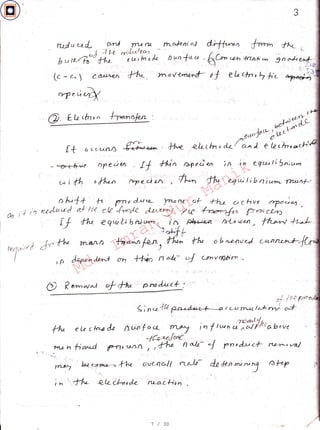 3
reduced and more material diffuses from the
of the reduction
bulk to the electrode surface. Concentration gradient
(c - c₁) causes the movement of electrolytic
species
② Electron transfer
surface between
electrode
It occurs the electrode and electroactive
species. If this species is in equilibrium
with other species, then the equilibrium must
shift to produce more of the active species,
as it is reduced at the electrode during the transfer process
If the equilibrium shift is slower than that
required for the mass transfer, then the observed current
is dependent on this rate of conversion.
③ Removal of the product:
of the
Since the product accumulation at
the electrode surface may influence all the above
really
therefore
mentioned process, the rate of product removal
may become the overall rate determining step
in the electrode reaction.
7 / 30